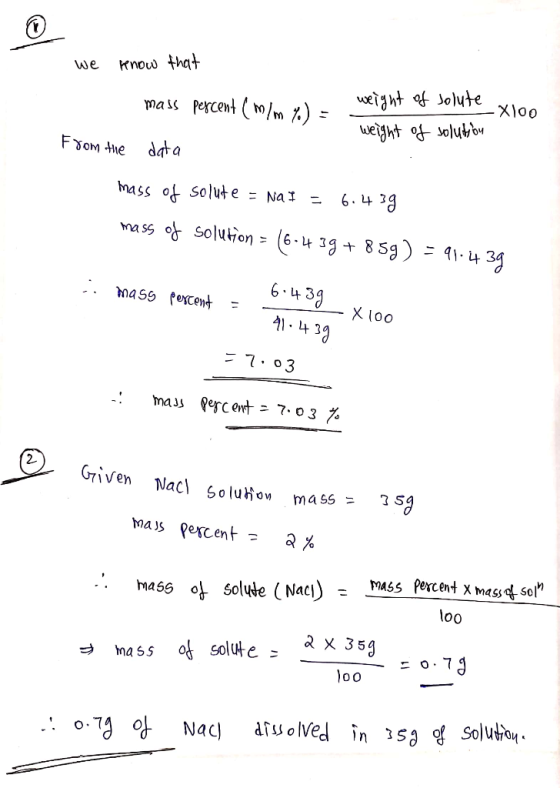 1
we know that
mass percent (m/m %) = weight of solute / weight of solution × 100
From the data
mass of solute = NaI = 6.43g
mass of solution = (6.43g + 85g) = 91.43g
∴ mass percent = 6.43g / 91.43g × 100
= 7.03
∴ mass percent = 7.03 %
2
Given Nacl solution mass = 35g
mass percent = 2 %
∴ mass of solute (Nacl) = mass percent × mass of solⁿ / 100
⇒ mass of solute = 2 × 35g / 100 = 0.7g
∴ 0.7g of Nacl dissolved in 35g of solution.